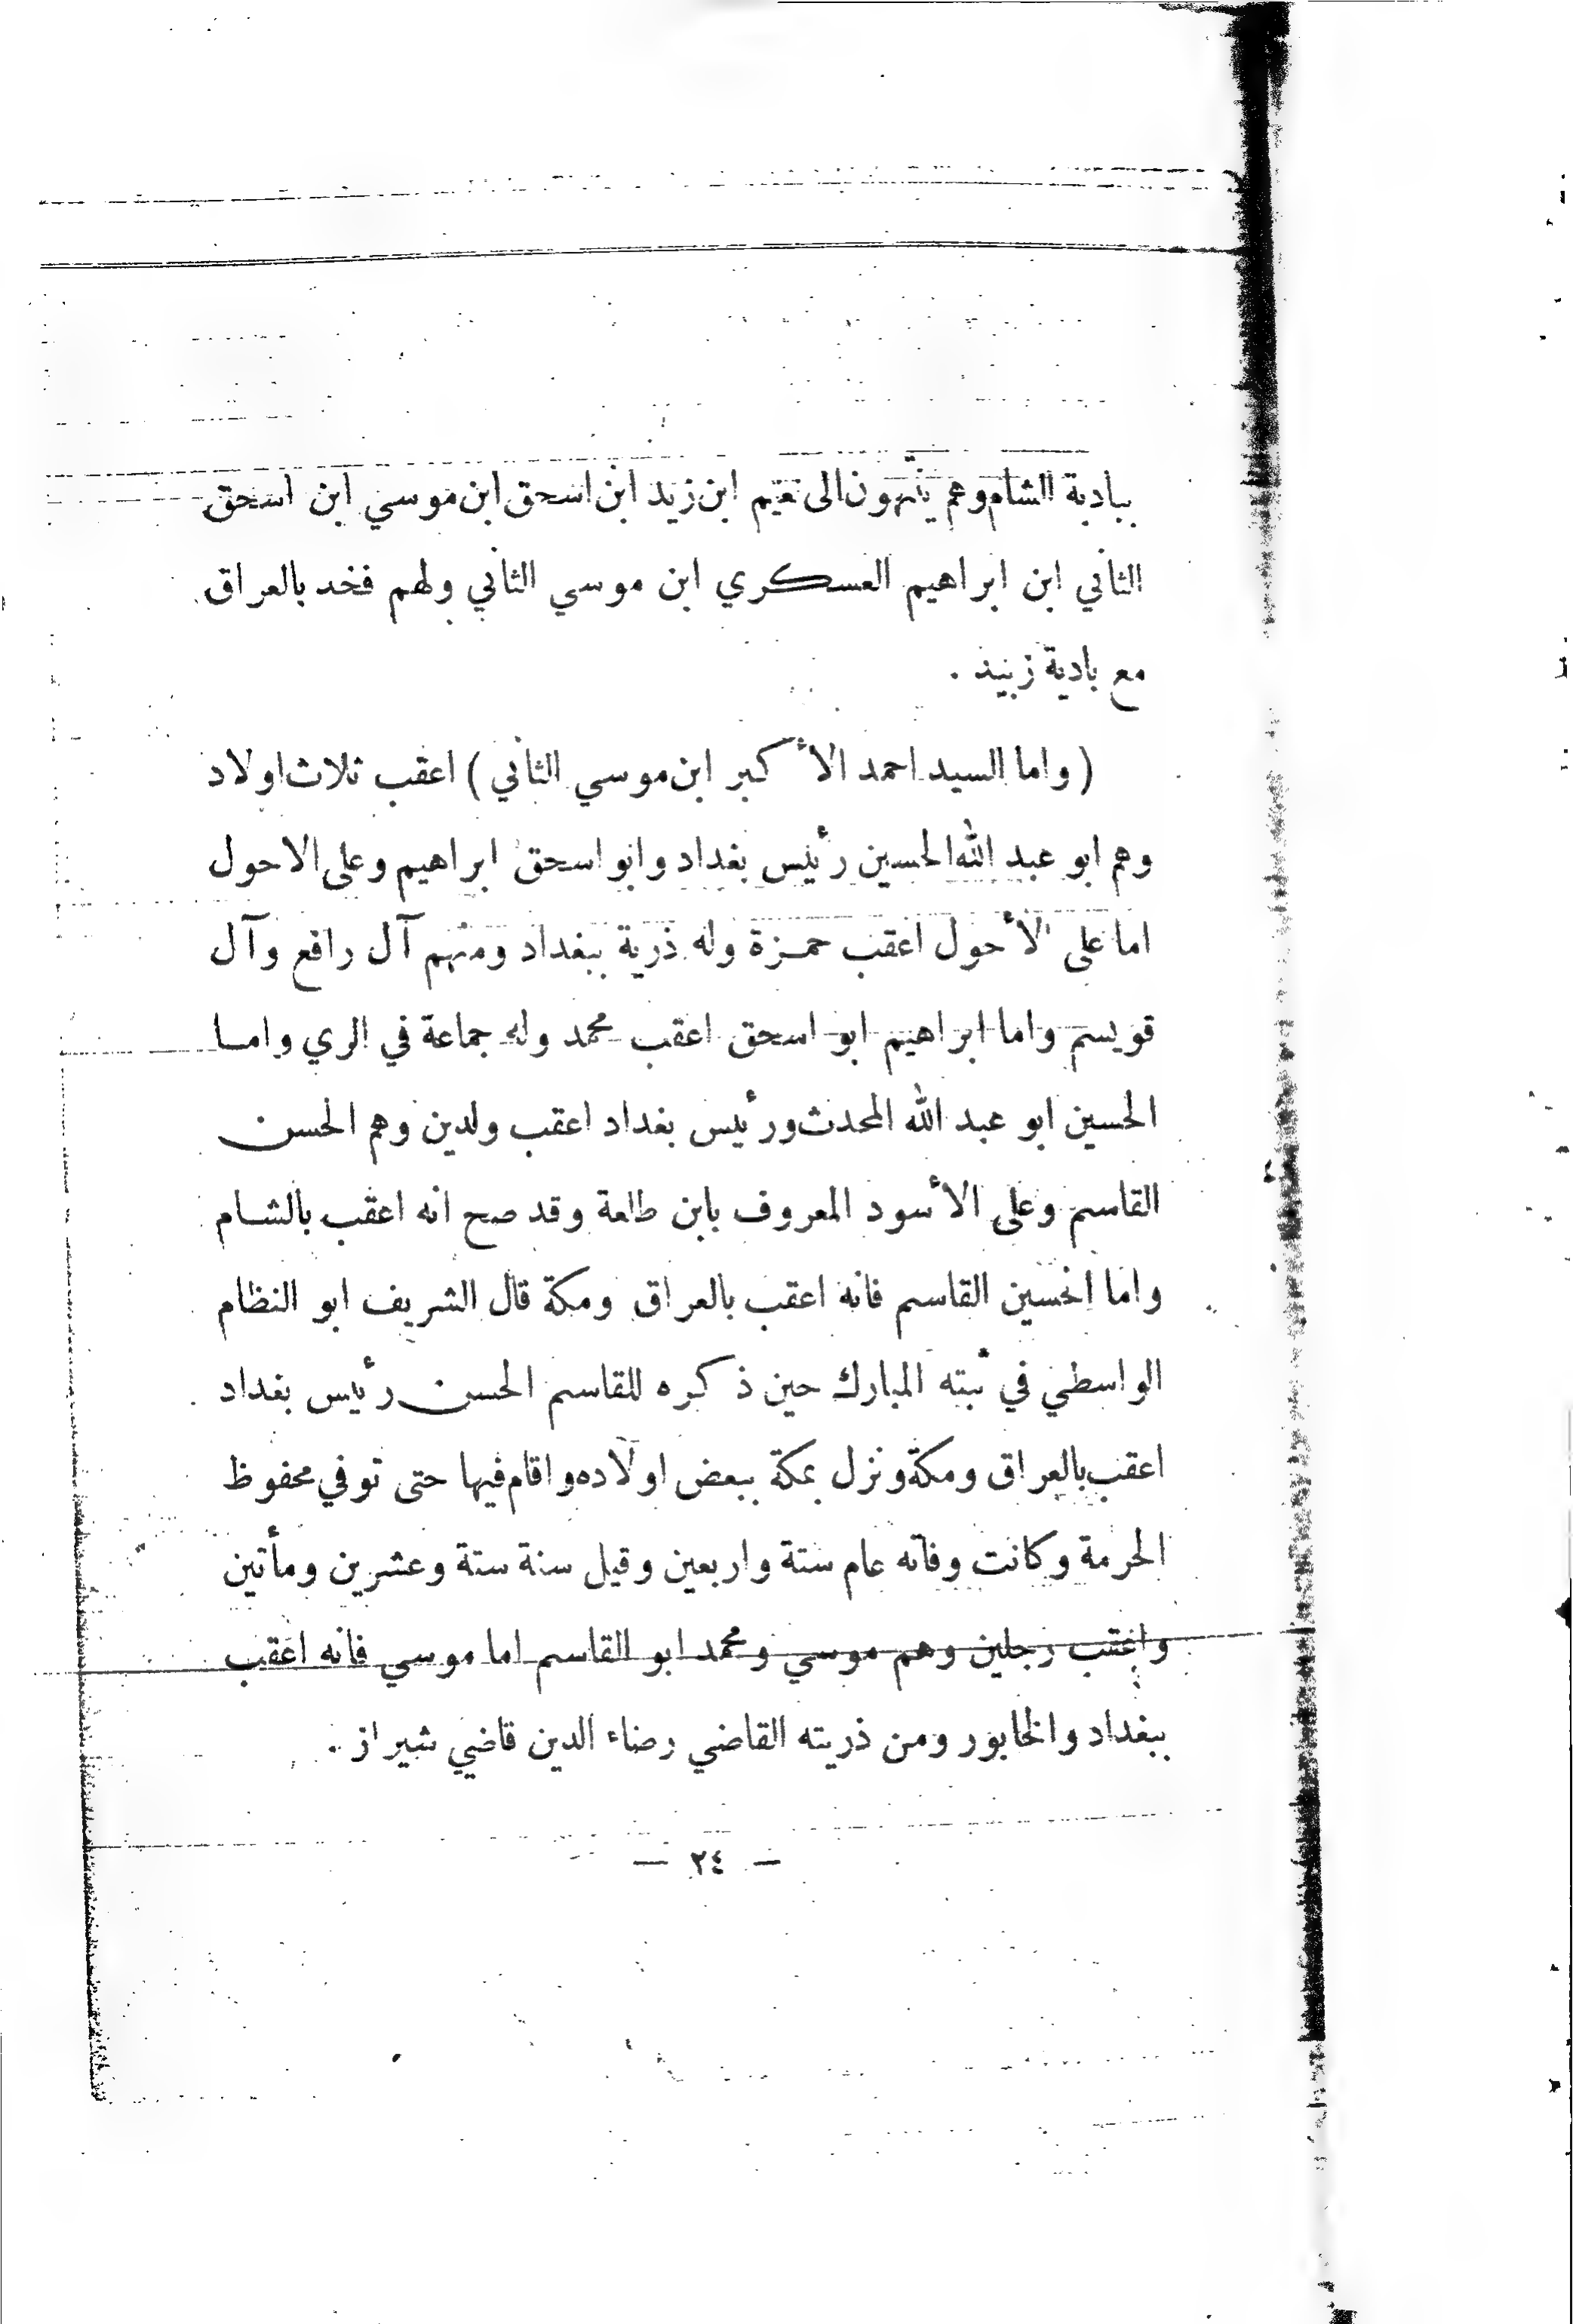 ببادية الشام وهم ينتهون الى نعيم ابن زيد ابن اسحق ابن موسي ابن اسحق
الثاني ابن ابراهيم العسكري ابن موسي الثاني ولهم فخد بالعراق
مع بادية زبيد .
( واما السيد احمد الأكبر ابن موسي الثاني ) اعقب ثلاث اولاد
وهم ابو عبد الله الحسين رأيس بغداد وابو اسحق ابراهيم وعلى الاحول
اما على الأحول اعقب حمزة وله ذرية ببغداد ومنهم آل رافع وآل
قويسم واما ابراهيم ابو اسحق اعقب محمد وله جماعة في الري واما
الحسين ابو عبد الله المحدث ورأيس بغداد اعقب ولدين وهم الحسن
القاسم وعلى الأسود المعروف بابن طلعة وقد صح انه اعقب بالشام
واما الحسين القاسم فانه اعقب بالعراق ومكة قال الشريف ابو النظام
الواسطي في ثبته المبارك حين ذكره للقاسم الحسن رأيس بغداد
اعقب بالعراق ومكة ونزل بمكة ببعض اولاده واقام فيها حتى توفي محفوظ
الحرمة وكانت وفاته عام ستة واربعين وقيل سنة ستة وعشرين ومأتين
واعقب رجلين وهم موسي ومحمد ابو القاسم اما موسي فانه اعقب
ببغداد والخابور ومن ذريته القاضي رضاء الدين قاضي شيراز .
— ٢٤ —